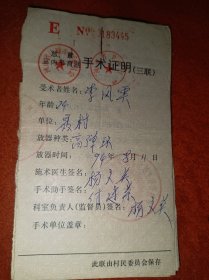 E № 183445
手术证明(三联)
受术者姓名:李凤云
年龄:24
单位:
放器种类:高弹环
放器时间:94年3月11日
施术医生签名:杨文兰
手术助手签名:付建荣
科室负责人(监督员)签名:杨文兰
手术单位盖章:
此联由村民委员会保存